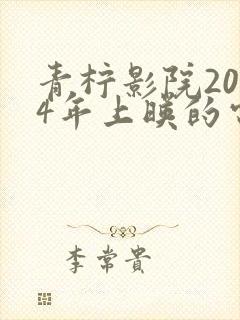 青柠影院20
4年上映的
李常貴